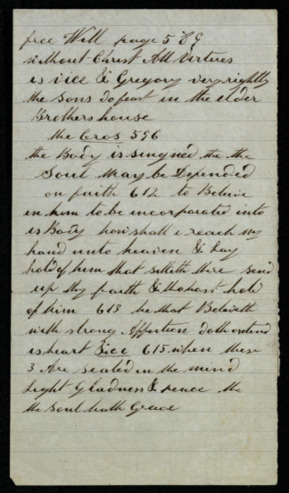 free Will page 589
without Christ All Virtues
is vice & Gregory very rightly
the sons do feast in the elder
Brothers house
the Cros 596
the Body is singned the the
Soul May be Depended
on faith 612 to Beleive
in him to be incorporated into
is Body how shall i reach my
hand unto heaven & Lay
hold of him that setteth there send
up thy faith & thou hast hold
of him 613 he that Beleiveth
with strong Affection doth extend
is heart 615 when these
3 Are sealed in the mind
Light Gladness & peace the
the soul hath Grace